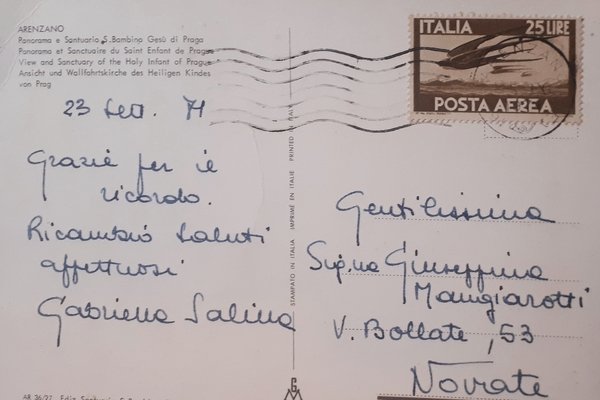 ARENZANO
Panorama e Santuario S. Bambino Gesù di Praga
Panorama et Sanctuaire du Saint Enfant de Prague
View and Sanctuary of the Holy Infant of Prague
Ansicht und Wallfahrtskirche des Heiligen Kindes
von Prag
23 Set. 71
Grazie per il
ricordo.
Ricambio saluti
affettuosi
Gabriella Salina
STAMPATO IN ITALIA IMPRIMÉ EN ITALIE PRINTED IN ITALY
ITALIA 25 LIRE
POSTA AEREA
Gentilissima
Sig.na Giuseppina
Mangiarotti
V. Bollate, 53
Novate
AR 36/27 Ediz. Santuario